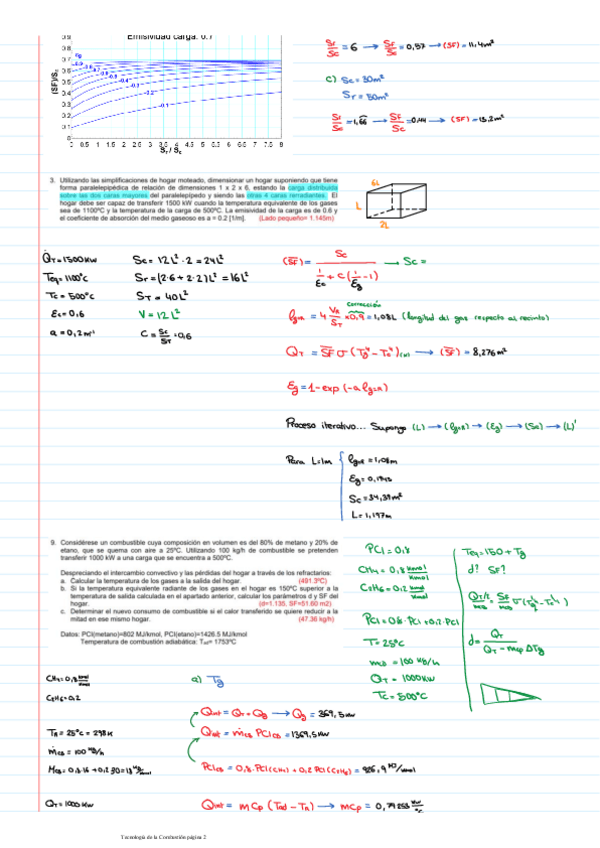 Emisividad carga: 0.7
(SF)/Sc
0.9
0.8
0.7
0.6
0.5
0.4
0.3
0.2
0.1
0
0 0.5 1 1.5 2 2.5 3 3.5 4 4.5 5 5.5 6 6.5 7 7.5 8
Sr / Sc
Sr/Sc = 6 → SF/Sc = 0,57 → (SF) = 11,4 m²
c) Sc = 30m²
Sr = 50m²
Sr/Sc = 1,66 → SF/Sc = 0,44 → (SF) = 13,2m²
3. Utilizando las simplificaciones de hogar moteado, dimensionar un hogar suponiendo que tiene
forma paralelepipédica de relación de dimensiones 1 x 2 x 6, estando la carga distribuida
sobre las dos caras mayores del paralelepípedo y siendo las otras 4 caras rerradiantes. El
hogar debe ser capaz de transferir 1500 kW cuando la temperatura equivalente de los gases
sea de 1100ºC y la temperatura de la carga de 500ºC. La emisividad de la carga es de 0.6 y
el coeficiente de absorción del medio gaseoso es a = 0.2 [1/m]. (Lado pequeño= 1.145m)
6L
L
2L
QT = 1500 kW
Teq = 1100°C
Tc = 500°C
Ec = 0,6
a = 0,2 m⁻¹
Sc = 12L²·2 = 24L²
Sr = (2·6+2·2)L² = 16L²
ST = 40L²
V = 12L²
C = Sc/ST = 0,6
(SF) = Sc / (1/Ec + C(1/Eg − 1)) → Sc =
corrección
lgas = 4 VR/ST × 0,9 = 1,08L (longitud del gas respecto al recinto)
QT = SF σ (Tg⁴ − Tc⁴) → (SF) = 8,276 m²
Eg = 1 - exp (-a lgas)
Proceso iterativo... Supongo (L) → (lgas) → (Eg) → (Sc) → (L)'
Para L=1m
lgas = 1,08m
Eg = 0,1943
Sc = 34,39m²
L = 1,197m
9. Considérese un combustible cuya composición en volumen es del 80% de metano y 20% de
etano, que se quema con aire a 25ºC. Utilizando 100 kg/h de combustible se pretenden
transferir 1000 kW a una carga que se encuentra a 500ºC.
Despreciando el intercambio convectivo y las pérdidas del hogar a través de los refractarios:
a. Calcular la temperatura de los gases a la salida del hogar. (491.3ºC)
b. Si la temperatura equivalente radiante de los gases en el hogar es 150ºC superior a la
temperatura de salida calculada en el apartado anterior, calcular los parámetros d y SF del
hogar. (d=1.135, SF=51.60 m2)
c. Determinar el nuevo consumo de combustible si el calor transferido se quiere reducir a la
mitad en ese mismo hogar. (47.36 kg/h)
Datos: PCI(metano)=802 MJ/kmol, PCI(etano)=1426.5 MJ/kmol
Temperatura de combustión adiabática: Tad= 1753ºC
PCI = 0,8
CH4 = 0,8 kmol/kmol
C2H6 = 0,2 kmol/kmol
PCI = 0,8·PCI + 0,2·PCI
T = 25°C
mcb = 100 kg/h
QT = 1000kW
Tc = 500°C
Teq = 150 + Tg
d? SF?
d = QT / (QT − mcp ΔTg)
CH4 = 0,8 kmol/kmol
C2H6 = 0,2
TA = 25°C = 298K
mcb = 100 kg/h
Mcb = 0,8·16 + 0,2·30 = 18 kg/kmol
QT = 1000 kW
a) Tg
Qint = QT + Qg → Qg = 369,5 kW
Qint = mcb PCIcb = 1369,5kW
PCIcb = 0,8·PCI(CH4) + 0,2 PCI(C2H6) = 926,9 MJ/kmol
Qint = mcp (Tad − TA) → mcp = 0,79253 kW/°C
Tecnología de la Combustión página 2